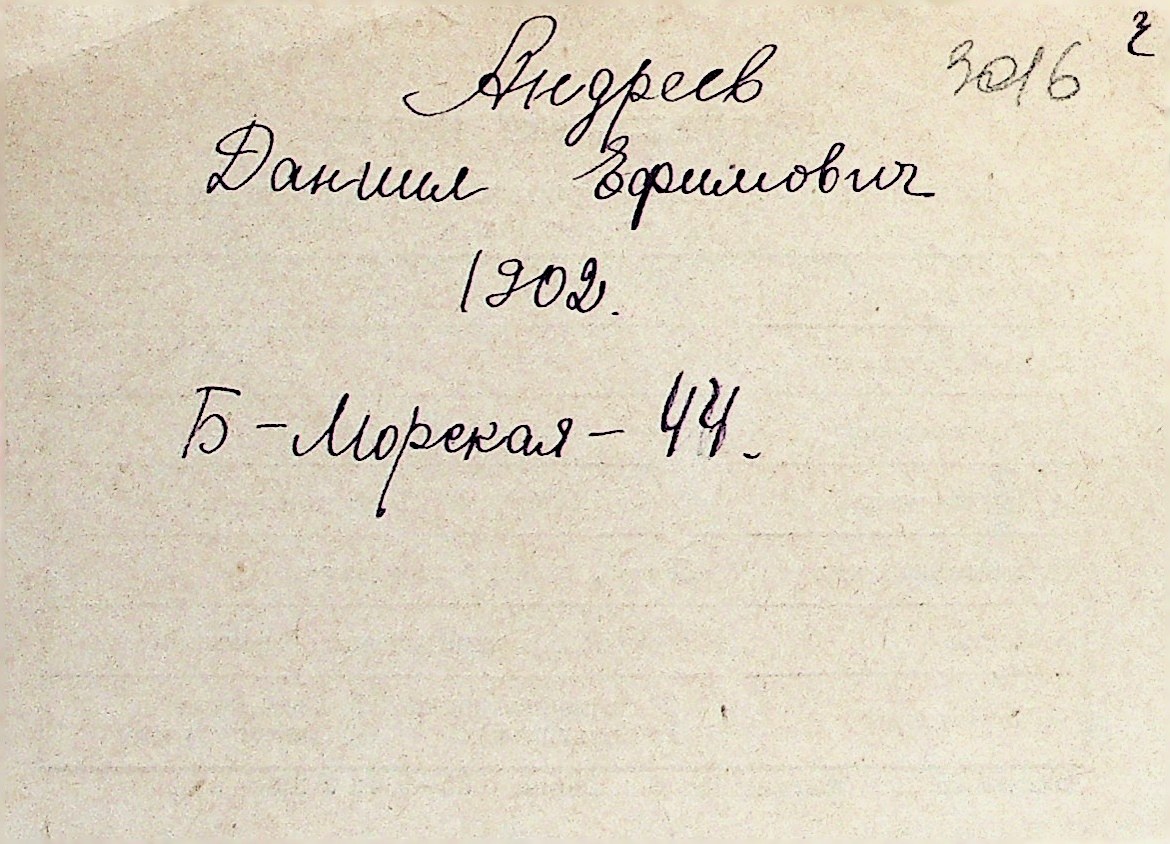 Андреев
3016
Даниил Ефимович
1902.
Б-Морская-44.